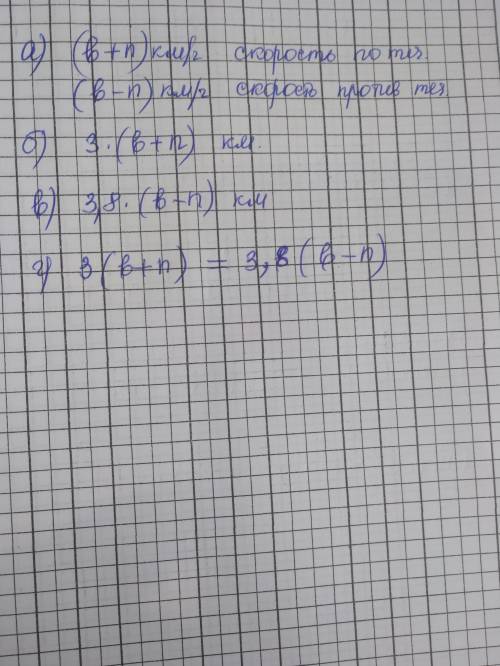 а) (в+п) км/ч скорость по теч.
(в-п) км/ч скорость против теч
б) 3·(в+п) км.
в) 3,8·(в-п) км
г) 3(в+п) = 3,8(в-п)